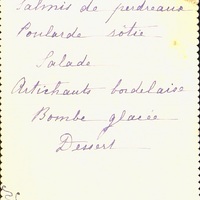 Salmis de perdreaux
Poularde rôtie
Salade
Artichauts bordelaise
Bombe glacée
Dessert